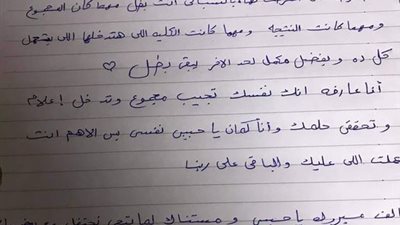 انت بطل مهما كان المجموع
ومهما كانت النتيجه ومهما كانت الكليه اللى هتدخلها اللى يتحمل
كل ده ويفضل مكمل لحد الاخر يبقى بطل ♡
أنا عارفه انك نفسك تجيب مجموع وتدخل إعلام
وتحققى حلمك وأنا كمان يا حبيبى نفسى بس الاهم انت
عملت اللى عليك والباقى على ربنا
الف مبروك يا حبيبى ومستناك